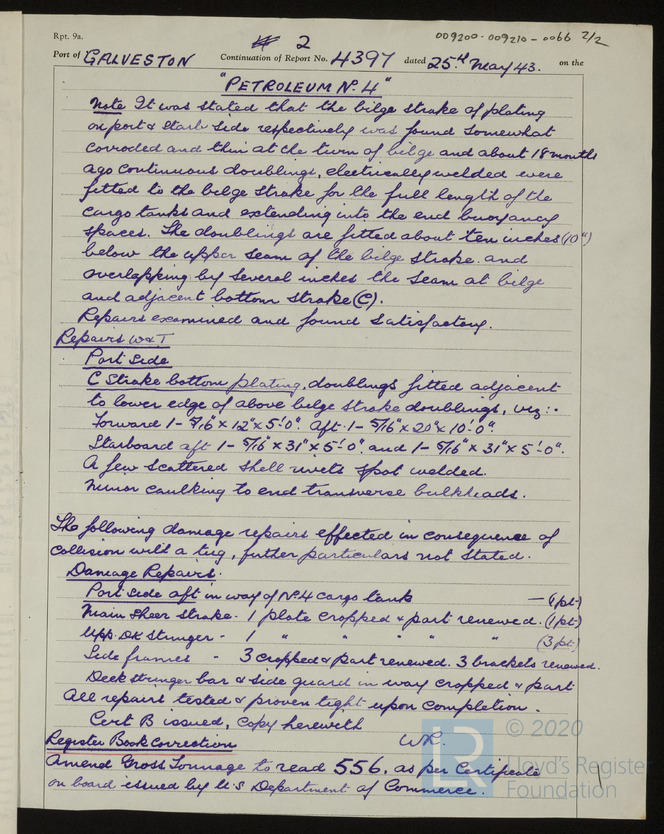 Rpt. 9a.
# 2
009200-009210-0066 2/2
Port of GALVESTON Continuation of Report No. 4397 dated 25th May 43. on the
"PETROLEUM No. 4"
Note It was stated that the bilge strake of plating
on port & starb side respectively was found somewhat
corroded and thin at the turn of bilge and about 18 months
ago continuous doublings, electrically welded were
fitted to the bilge strake for the full length of the
cargo tanks and extending into the end buoyancy
spaces. The doublings are fitted about ten inches (10")
below the upper seam of the bilge strake and
overlapping by several inches the seam at bilge
and adjacent bottom strake (C).
Repairs examined and found satisfactory.
Repairs W&T
Port Side
C Strake bottom plating, doublings fitted adjacent
to lower edge of above bilge strake doublings, viz:-
Forward 1- 5/16" x 12" x 5'-0". Aft 1- 5/16" x 20" x 10'-0"
Starboard aft 1- 5/16" x 31" x 5'-0" and 1- 5/16" x 31" x 5'-0".
A few scattered shell rivets spot welded.
Minor caulking to end transverse bulkheads.
The following damage repairs effected in consequence of
collision with a tug, further particulars not stated.
Damage Repairs.
Port side aft in way of No. 4 cargo tank — (1 pt)
Main sheer strake - 1 plate cropped & part renewed. (1 pt)
Upp. Dk Stringer - 1 " " " " " (3 pt)
Side frames - 3 cropped & part renewed. 3 brackets renewed.
Deck stringer bar & side guard in way cropped & part
All repairs tested & proven tight upon completion.
Cert B issued, copy herewith
WR.
Register Book Correction
Amend Gross Tonnage to read 556, as per Certificate
on board issued by U.S Department of Commerce.
© 2020
Lloyd's Register
Foundation